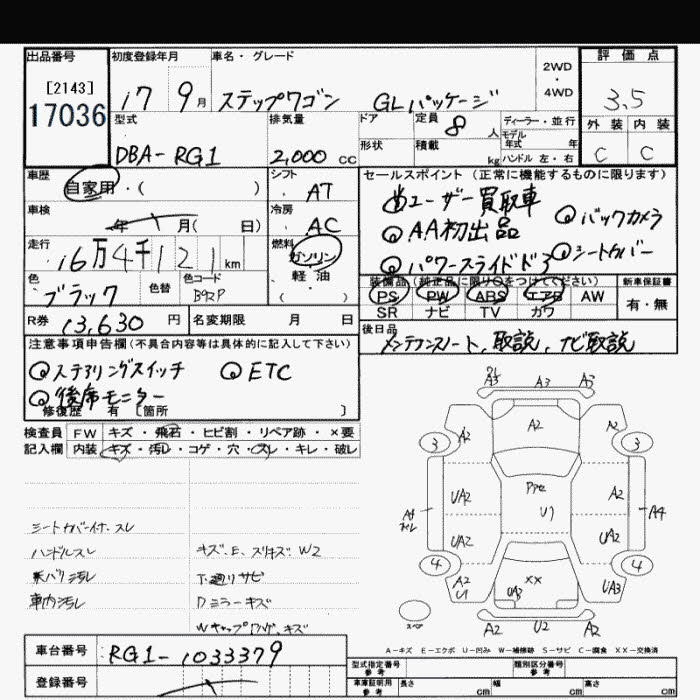 出品番号 初度登録年月 車名・グレード 評価点
[2143]
17036
17 9月 ステップワゴン GLパッケージ 2WD・4WD 3.5
型式 排気量 ドア 定員 8人 ディーラー・並行 外装 内装
DBA-RG1 2,000 cc 形状 積載 kg モデル年式 年 C C
ハンドル 左・右
車歴 シフト セールスポイント(正常に機能するものに限ります)
自家用・( ) AT ユーザー買取車
車検 冷房 バックカメラ
年 月( 日) AC AA初出品
走行 燃料 シートカバー
16万4千121km ガソリン パワースライドドア
軽・油
( )
色 色替 色コード 装備品(純正品に限り○をつけてください) 新車保証書
ブラック B92P PS PW ABS エアB AW 有・無
SR ナビ TV ガワ
R券 13,630円 名変期限 月 日 後日品
メンテナンスノート、取説、ナビ取説
注意事項申告欄(不具合内容等は具体的に記入して下さい)
ステアリングスイッチ ETC
後席モニター
修復歴 有 [箇所 ]
検査員 FW キズ・飛石・ヒビ割・リペア跡・×要
記入欄 内装 キズ・汚れ・コゲ・穴・スレ・キレ・破レ
A3 A3
A2
3 A2 A2 3
UA2 U1 A2 A4
UA2 UA2
4 XX 4
A2 U1 UA3 UA3
A2 U2 A2
スペア
シートカバー付、スレ
ハンドルスレ キズ、E、スリキズ W2
天バリ汚レ 下廻りサビ
車内汚レ Dミラーキズ
キズ
A-キズ E-エクボ U-凹み W-補修跡 S-サビ C-腐食 XX-交換済
車台番号 RG1-1033379
登録番号
型式指定番号 参考 類別区分番号 参考
車庫証明用 参考 長さ cm 幅 cm 高さ cm